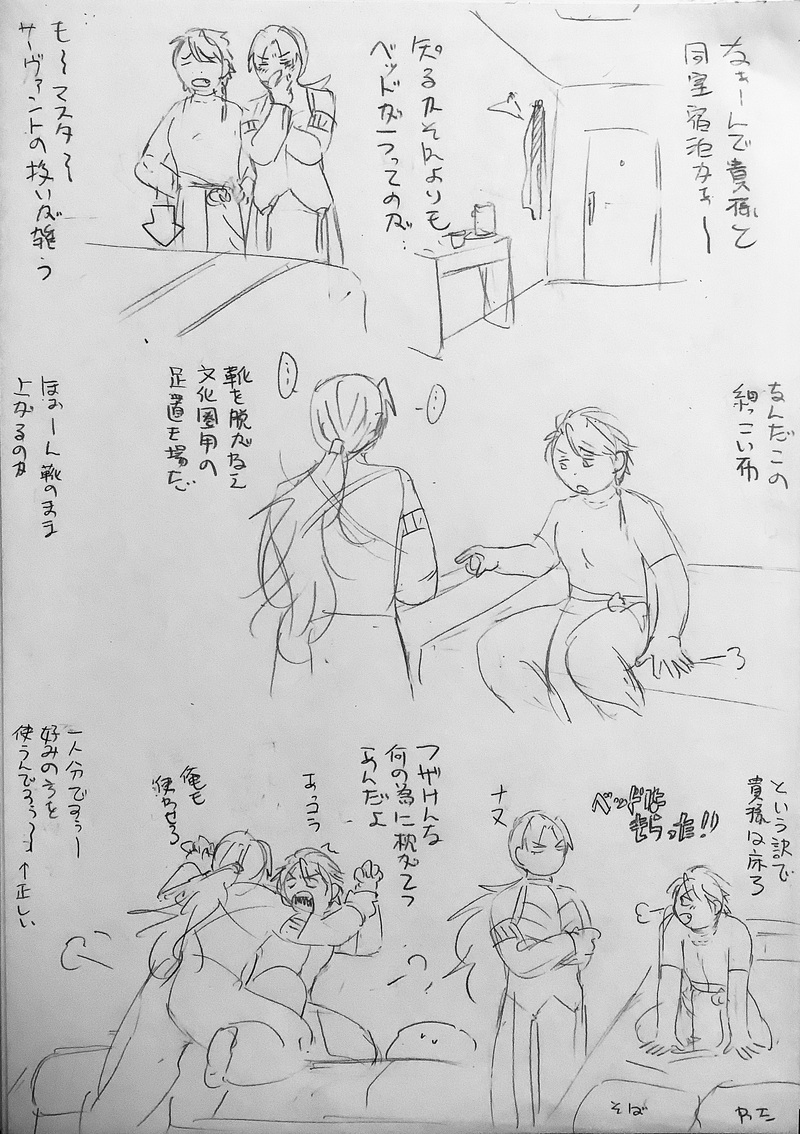 なぁーんで貴様と
同室宿泊なぁ〜
知るかそれよりも
ベッドが一つってのが…
も〜マスター
サーヴァントの扱いが雑ぅ
なんだこの
細っこい布
…
…
靴を脱がねえ
文化圏用の
足置き場だ
ほぉーん靴のまま
上がるのか
という訳で
貴様は床ろ
ベッドは
もらった!!
ナヌ
フザけんな
何の為に枕が二つ
あんだよ
あっコラ
俺も
使わせろ
一人分ですぅー
好みの方を
使うんですぅぅ
↑正しい
そば